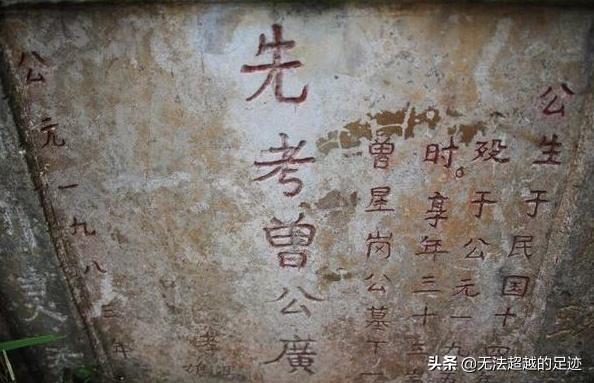 公生于民国十四
殁于公元一九
时。享年三十三
曾星岗公墓下
先考曾公廣
公元一九八三年
头条 @无法超越的足迹